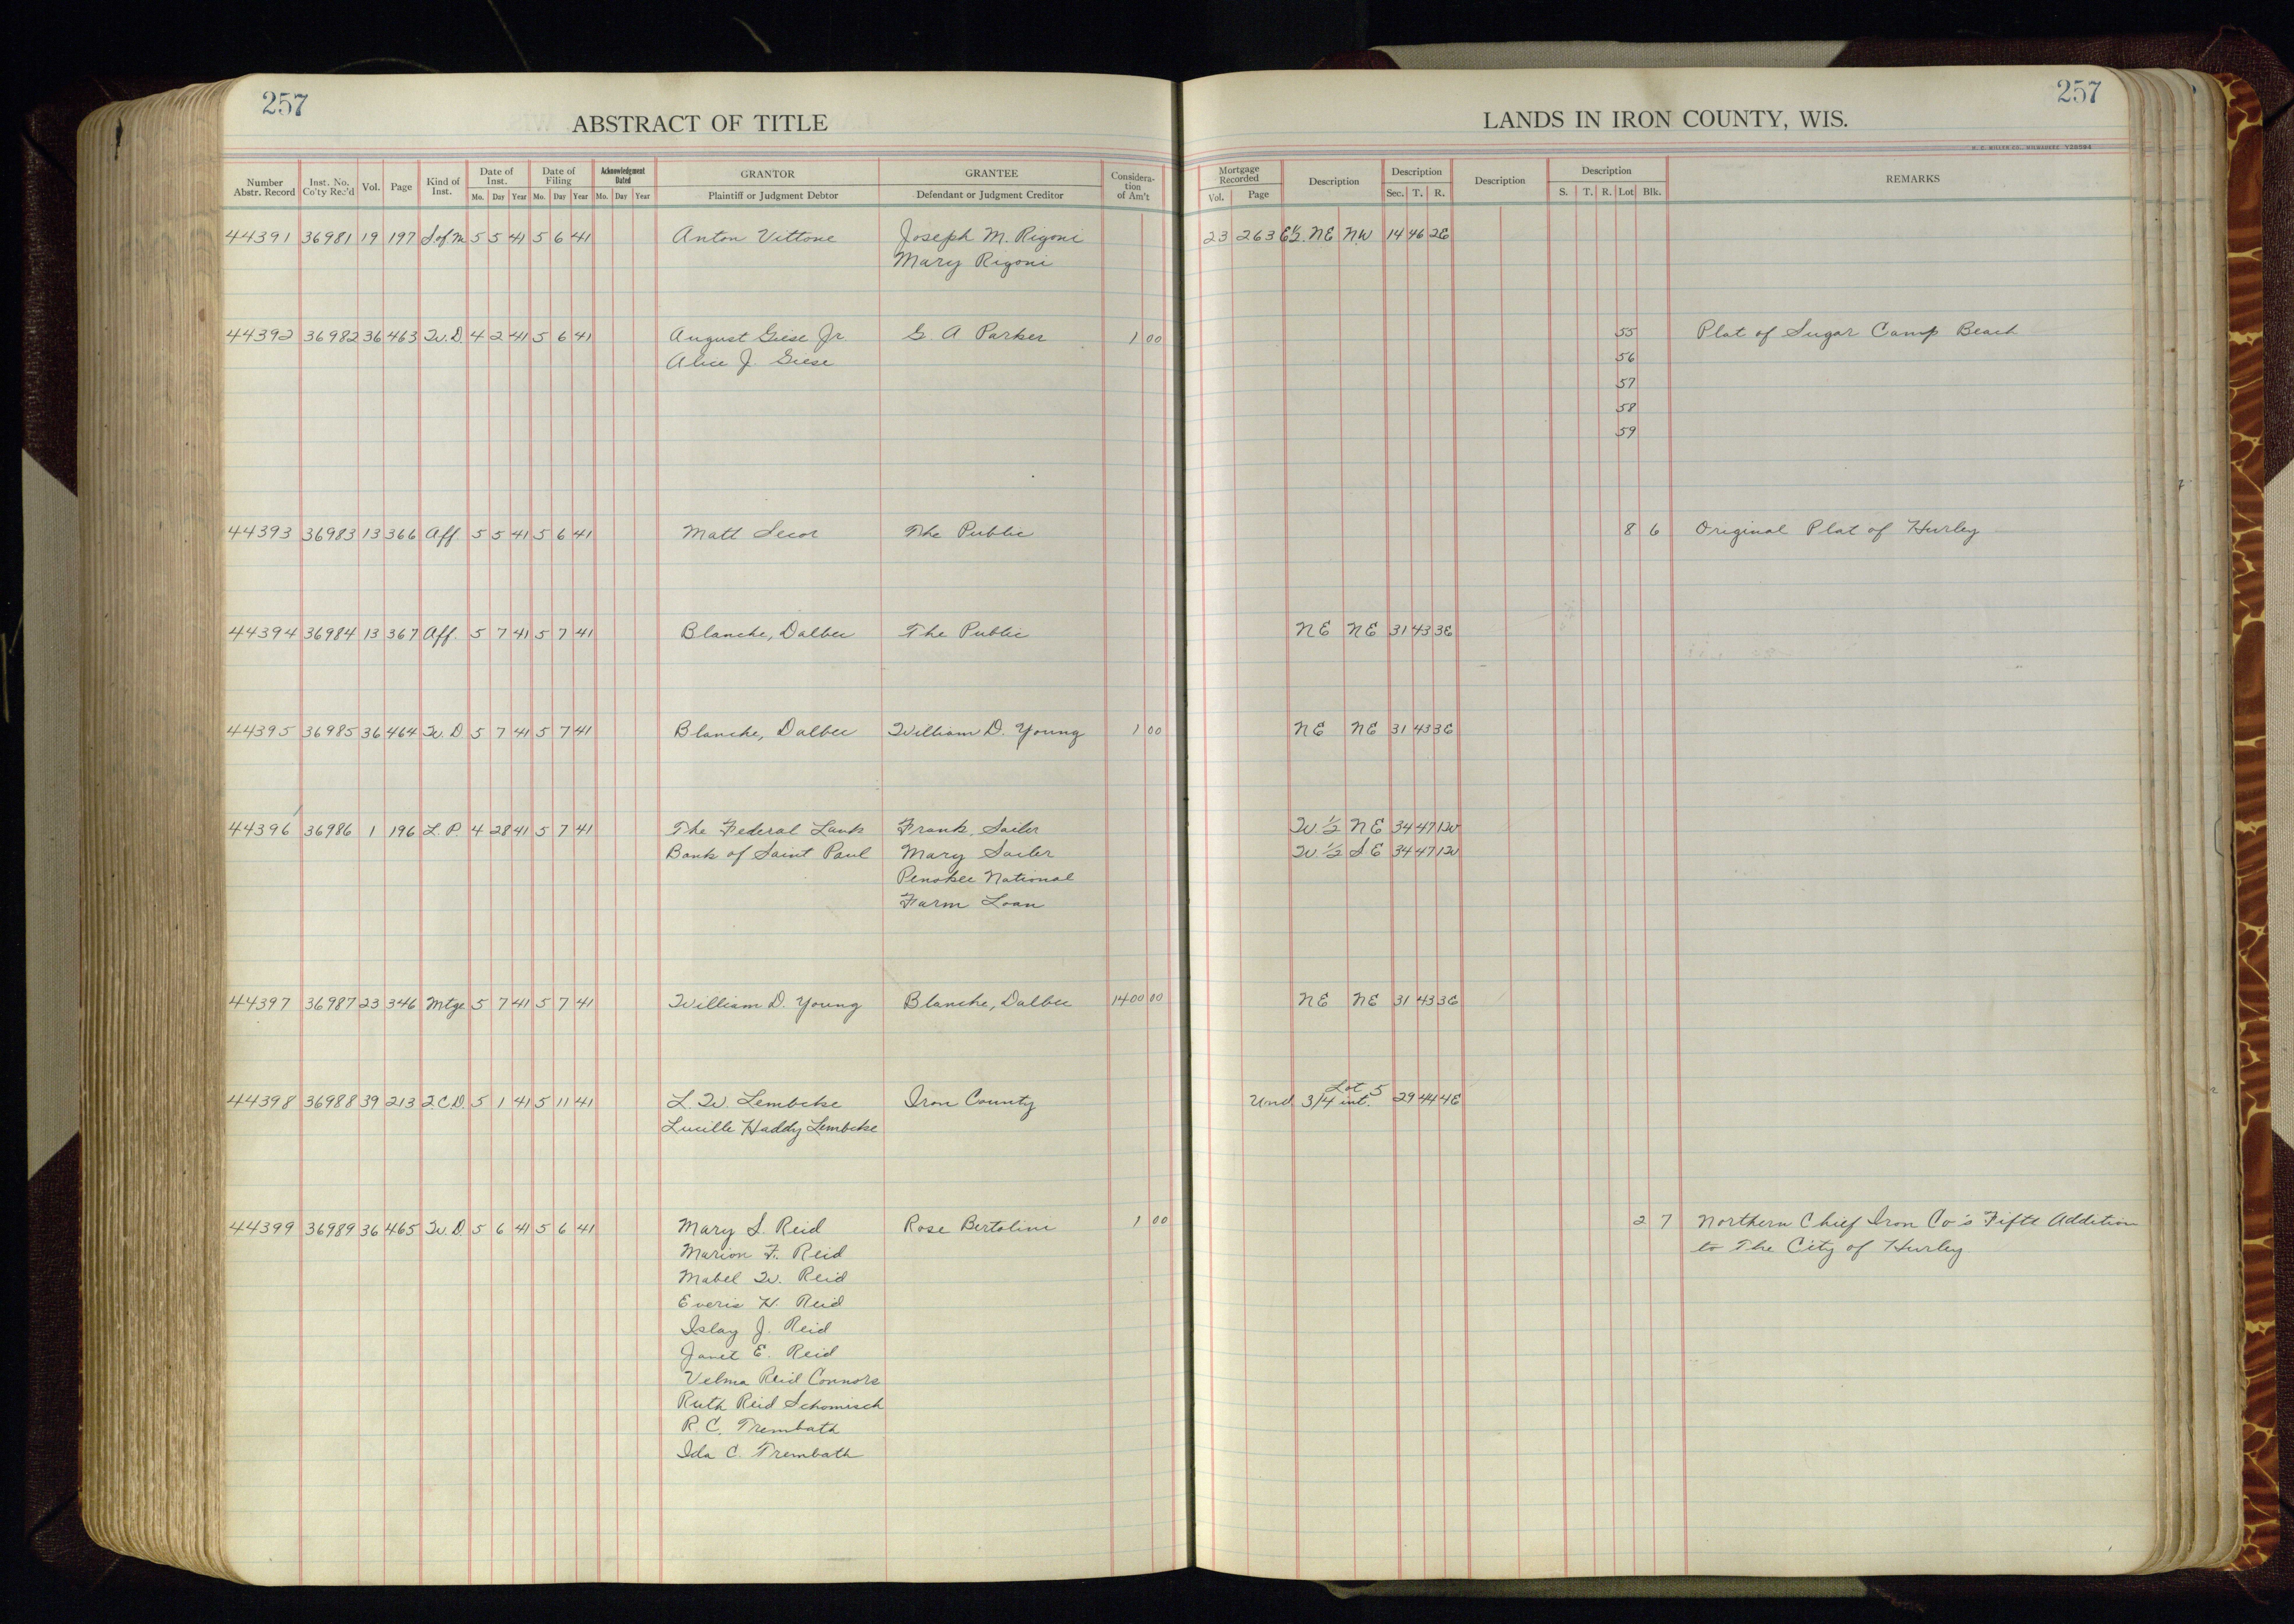 257
ABSTRACT OF TITLE
LANDS IN IRON COUNTY, WIS.
257
H. C. MILLER CO., MILWAUKEE Y28594
Number Abstr. Record | Inst. No. Co'ty Rec'd | Vol. | Page | Kind of Inst. | Date of Inst. Mo. Day Year | Date of Filing Mo. Day Year | Acknowledgment Dated Mo. Day Year | GRANTOR Plaintiff or Judgment Debtor | GRANTEE Defendant or Judgment Creditor | Consideration of Am't | Mortgage Recorded Vol. Page | Description | Description Sec. T. R. | Description | Description S. T. R. Lot Blk. | REMARKS
44391 36981 19 197 S.of M. 5 5 41 5 6 41 Anton Vittone Joseph M. Rigoni 23 263 E½ NE NW 14 46 2E
Mary Rigoni
44392 36982 36 463 W.D. 4 2 41 5 6 41 August Giese Jr. G. A Parker 1 00 55 Plat of Sugar Camp Beach
Alice J. Giese 56
57
58
59
44393 36983 13 366 Aff. 5 5 41 5 6 41 Matt Secor The Public 8 6 Original Plat of Hurley
44394 36984 13 367 Aff. 5 7 41 5 7 41 Blanche, Dalbec The Public NE NE 31 43 3E
44395 36985 36 464 W.D 5 7 41 5 7 41 Blanche, Dalbec William D. Young 1 00 NE NE 31 43 3E
44396 36986 1 196 L.P. 4 28 41 5 7 41 The Federal Land Frank Sailer W.½ NE 34 47 1W
Bank of Saint Paul Mary Sailer W.½ S.E 34 47 1W
Penokee National
Farm Loan
44397 36987 23 346 Mtge 5 7 41 5 7 41 William D. Young Blanche, Dalbec 1400 00 NE NE 31 43 3E
Lot 5
44398 36988 39 213 2.C.D. 5 1 41 5 11 41 L. W. Lembcke Iron County Und 3/4 int. 29 44 4E
Lucille Haddy Lembcke
44399 36989 36 465 W.D. 5 6 41 5 6 41 Mary S. Reid Rose Bertolini 1 00 2 7 Northern Chief Iron Co's Fifth Addition
Marion F. Reid to The City of Hurley
Mabel W. Reid
Everis H. Reid
Islay J. Reid
Janet E. Reid
Velma Reid Connors
Ruth Reid Schomisch
R. C. Trembath
Ida C. Trembath